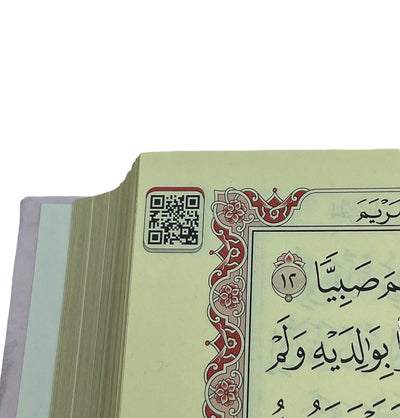 مَرْيَمَ
صَبِيًّا ١٢
بِوَٰلِدَيْهِ وَلَمْ